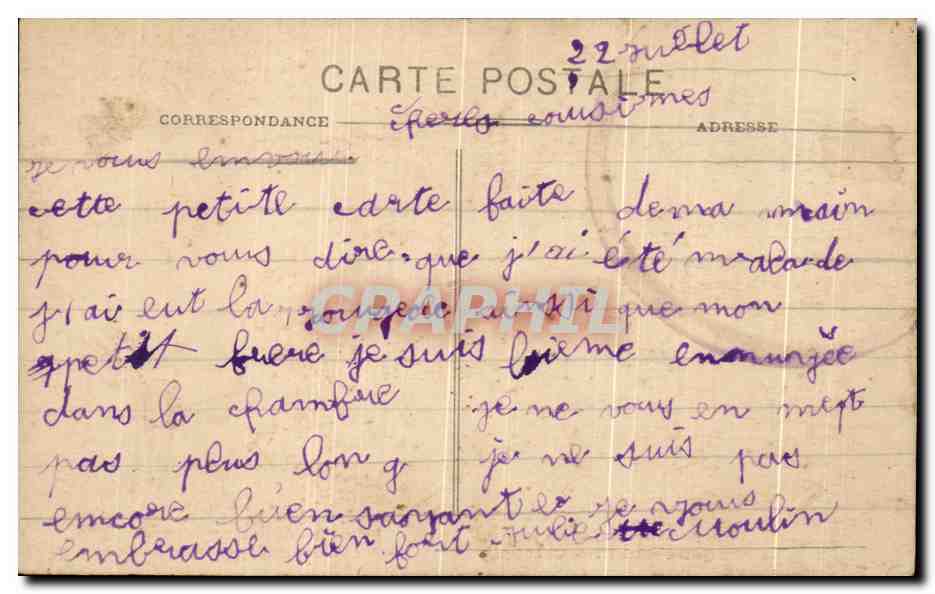 22 juillet
CARTE POSTALE
CORRESPONDANCE
cheres cousinnes
ADRESSE
je vous envoie
cette petite carte faite de ma main
pour vous dire que j'ai été malade
j'ai eut la rougeole aussi que mon
petit frere je suis bieme ennunjée
dans la chambre je ne vous en met
pas plus long je ne suis pas
encore bien savante je vous
embrasse bien fort Julie Moulin
CRAPHIL